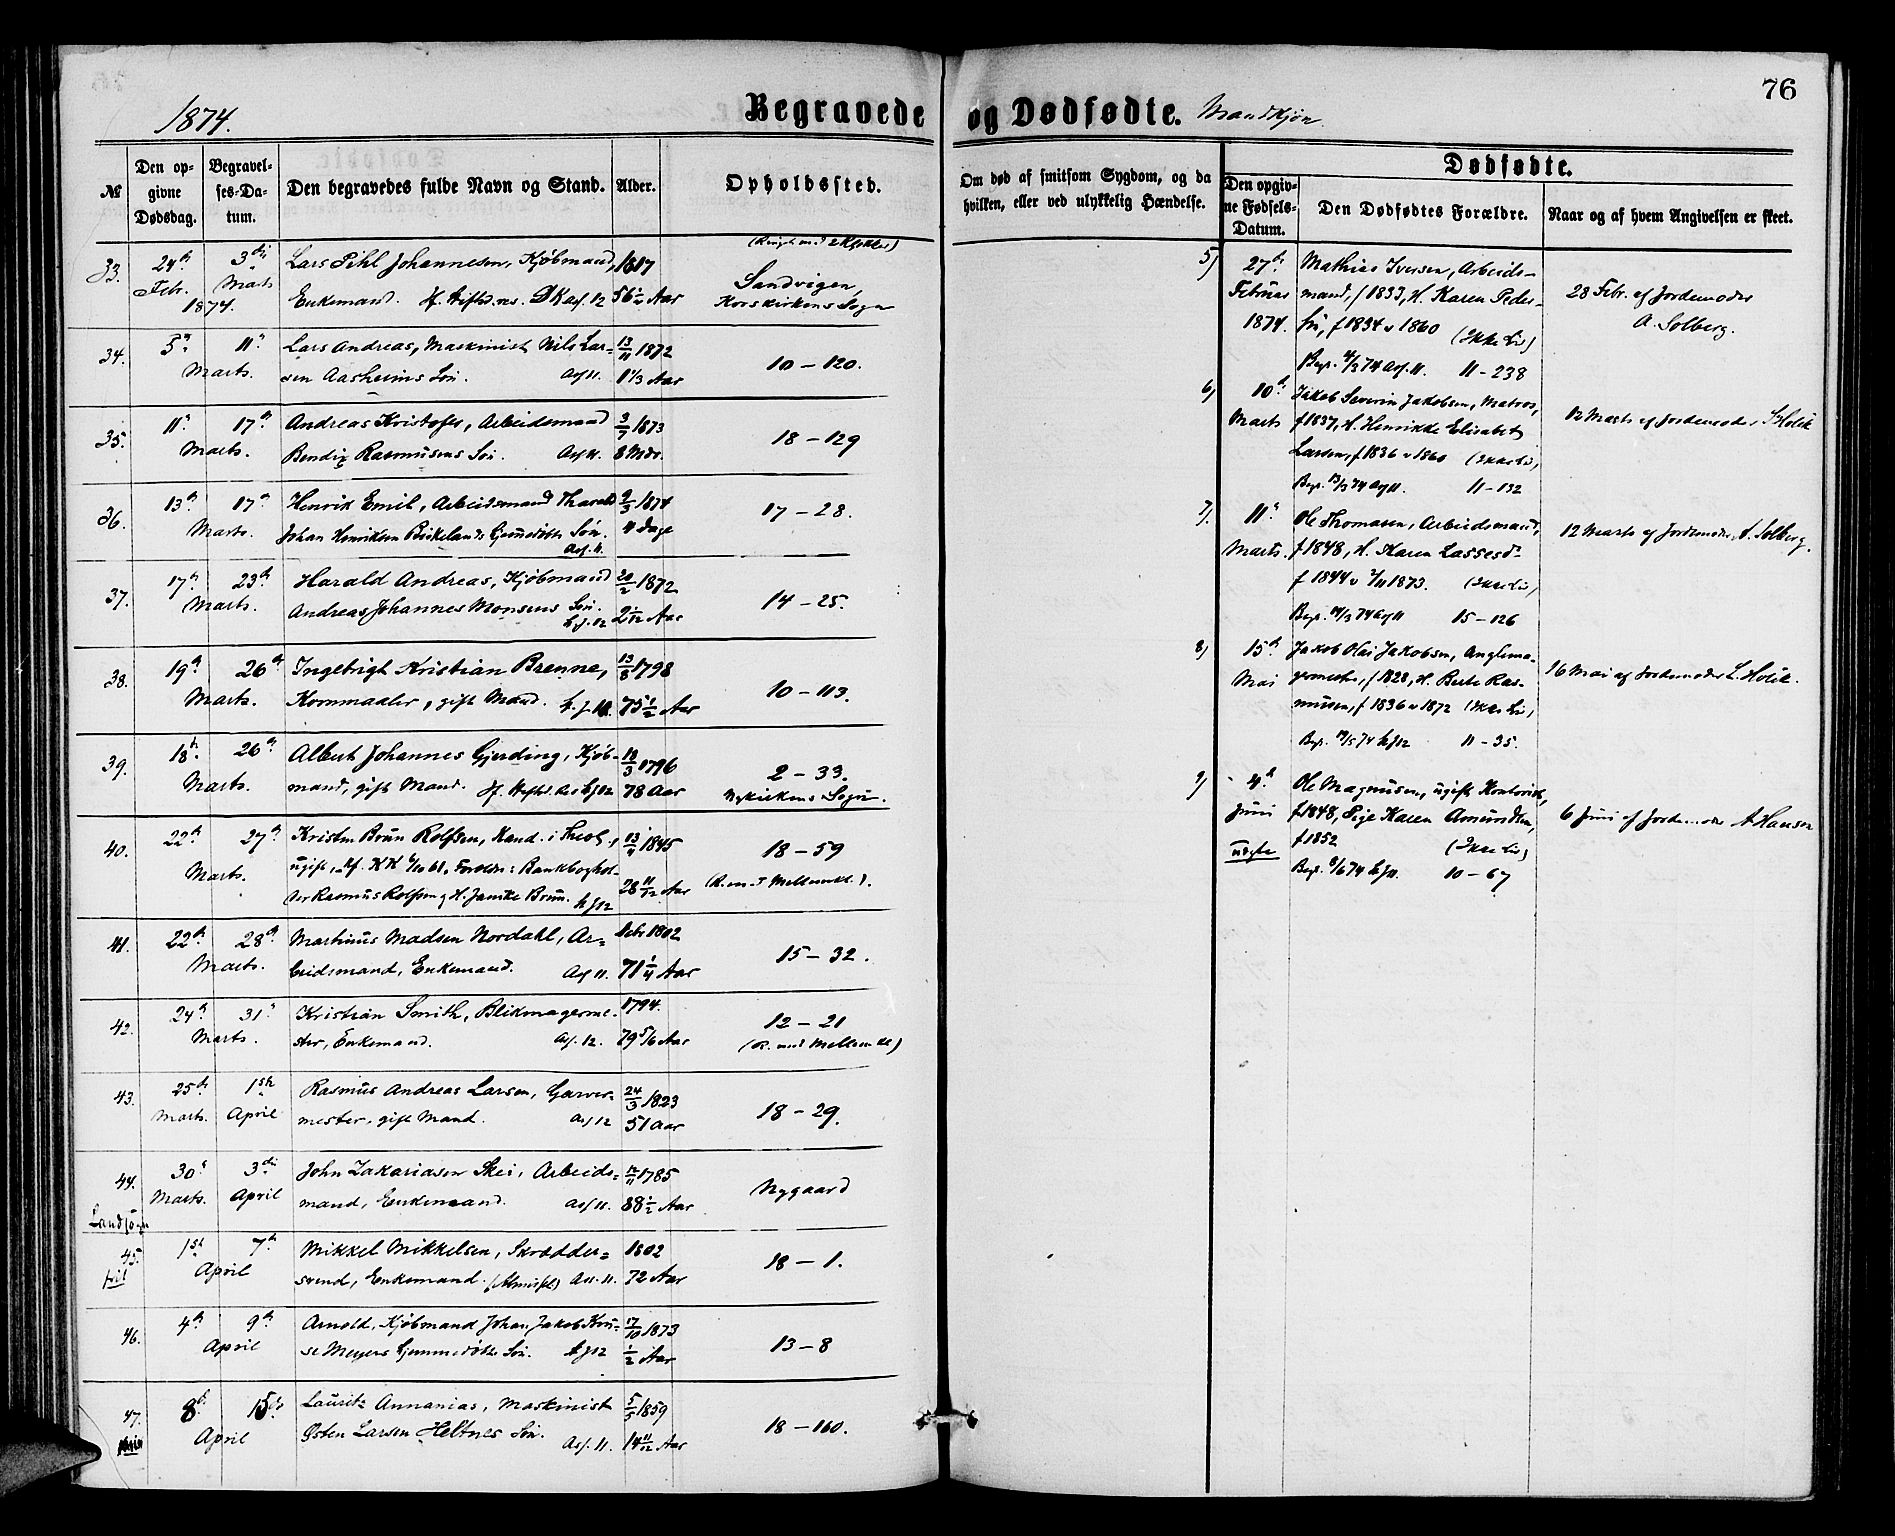 76
1874.
Begravede og Dødfødte. Mandkjøn.
№
Den opgivne Dødsdag.
Begravelses-Datum.
Den begravedes fulde Navn og Stand.
Alder.
Opholdssted.
Om død af smitsom Sygdom, og da hvilken, eller ved ulykkelig Hændelse.
Dødfødte.
Den opgivne Fødsels-Datum.
Den Dødfødtes Forældre.
Naar og af hvem Angivelsen er skeet.
33. 24de Febr. 3die Marts 1874. Lars Pihl Johannesen, Kjøbmand, 1817
Enkemand. 56 1/2 Aar Sandvigen, Korskirkens Sogn
34. 5te 11te Marts. Lars Andreas, Maskinist Nils Lar- 13/11 1872
sen Aasheims Søn. Asf 11. 1 1/3 Aar 10 – 120.
35. 11te 17de Marts. Andreas Kristofer, Arbeidsmand 3/7 1873
Bendix Rasmusens Søn. Asf 11. 8 Mdr. 18 – 129
36. 13de 17de Marts. Henrik Emil, Arbeidsmand 9/3 1874
Johan Henriksen Birkelands Søn. Asf. 11. 4 Dage 17 – 28.
37. 17de 23de Marts. Harald Andreas, Kjøbmand 20/2 1872
Andreas Johannes Monsens Søn. 2 1/12 Aar 14 – 25.
38. 19de 26de Marts. Ingebrigt Kristian Brenne, 13/8 1798
Kornmaaler, gift Mand. 75 1/2 Aar 10 – 113.
39. 18de 26de Marts. Albert Johannes Gjerding, Kjøb- 18/3 1796
mand, gift Mand. 78 Aar 2 – 33.
Nykirkens Sogn.
40. 22de 27de Marts. Kristen Brun Rolfsen, Kand. i Theol., 13/4 1845
ugift, Forældre: Bankboghol-
der Rasmus Rolfsen og H. Janike Brun. 28 11/12 Aar 18 – 59
41. 22de 28de Marts. Martinus Madsen Nordahl, Ar- 1802
beidsmand, Enkemand. Asf 11. 71 1/4 Aar 15 – 32.
42. 24de 31te Marts. Kristian Smith, Blikmagerme- 1794.
ster, Enkemand. Asf. 12. 79 5/6 Aar 12 – 21
43. 25de Marts. 1ste April Rasmus Andreas Larsen, Garver- 24/3 1823
mester, gift Mand. Asf 12 51 Aar 18 – 29.
44. 30te Marts. 3die April John Zakariasen Skei, Arbeids- 1785
mand, Enkemand. Asf 11. 88 1/2 Aar Nygaard
Landsogn
45. 1ste 7de April Mikkel Mikkelsen, Skrædder- 1802
svend, Enkemand. Asf. 11. 72 Aar 18 – 1.
46. 4de 9de April Arnold, Kjøbmand Johan Jakob Kru- 17/10 1873
se Meyers Hjemmedøbte Søn. 1/2 Aar 13 – 8
47. 8de 15de April Lauritz Annanias, Maskinist 5/5 1859
Østen Larsen Heltnes Søn. Asf. 11. 14 11/12 Aar 18 – 160.
5) 27de Februar 1874. Mathias Iversen, Arbeids-
mand, f 1833, H. Karen Peder-
f 1834 v 1860 (Ikke Liv)
Begr. 4/3 74 Asf. 11. 11 – 238
28 Febr. af Jordemoder
A. Solberg.
6) 10de Marts Jakob Severin Jakobsen, Matros,
f 1837, H. Henrikke Elisabet
Larsen, f 1836 v 1860 (Ikke Liv)
Begr. 13/3 74 Asf 11. 11 – 132
12 Marts af Jordemoder Holck
7). 11te Marts. Ole Thomasen, Arbeidsmand,
f 1848, H. Karen Lassesd.
f 1844 v 2/11 1873. (Ikke Liv)
Begr. 14/3 74 Asf 11 15 – 126
12 Marts af Jordemoder A. Solberg.
8) 15de Mai Jakob Olai Jakobsen, Anglema-
germester, f 1828, H. Berte Ras-
musen, f 1836 v 1872 (Ikke Liv)
Begr. 19/5 74 11 – 35.
16 Mai af Jordemoder L. Holck.
9) 4de Juni Ole Magnusen, ugift Kontorist,
f 1848, Pige Karen Amundsen,
f 1852 (Ikke Liv)
uægte Begr. 8/6 74 10 – 67
6 Juni af Jordemoder A Hansen